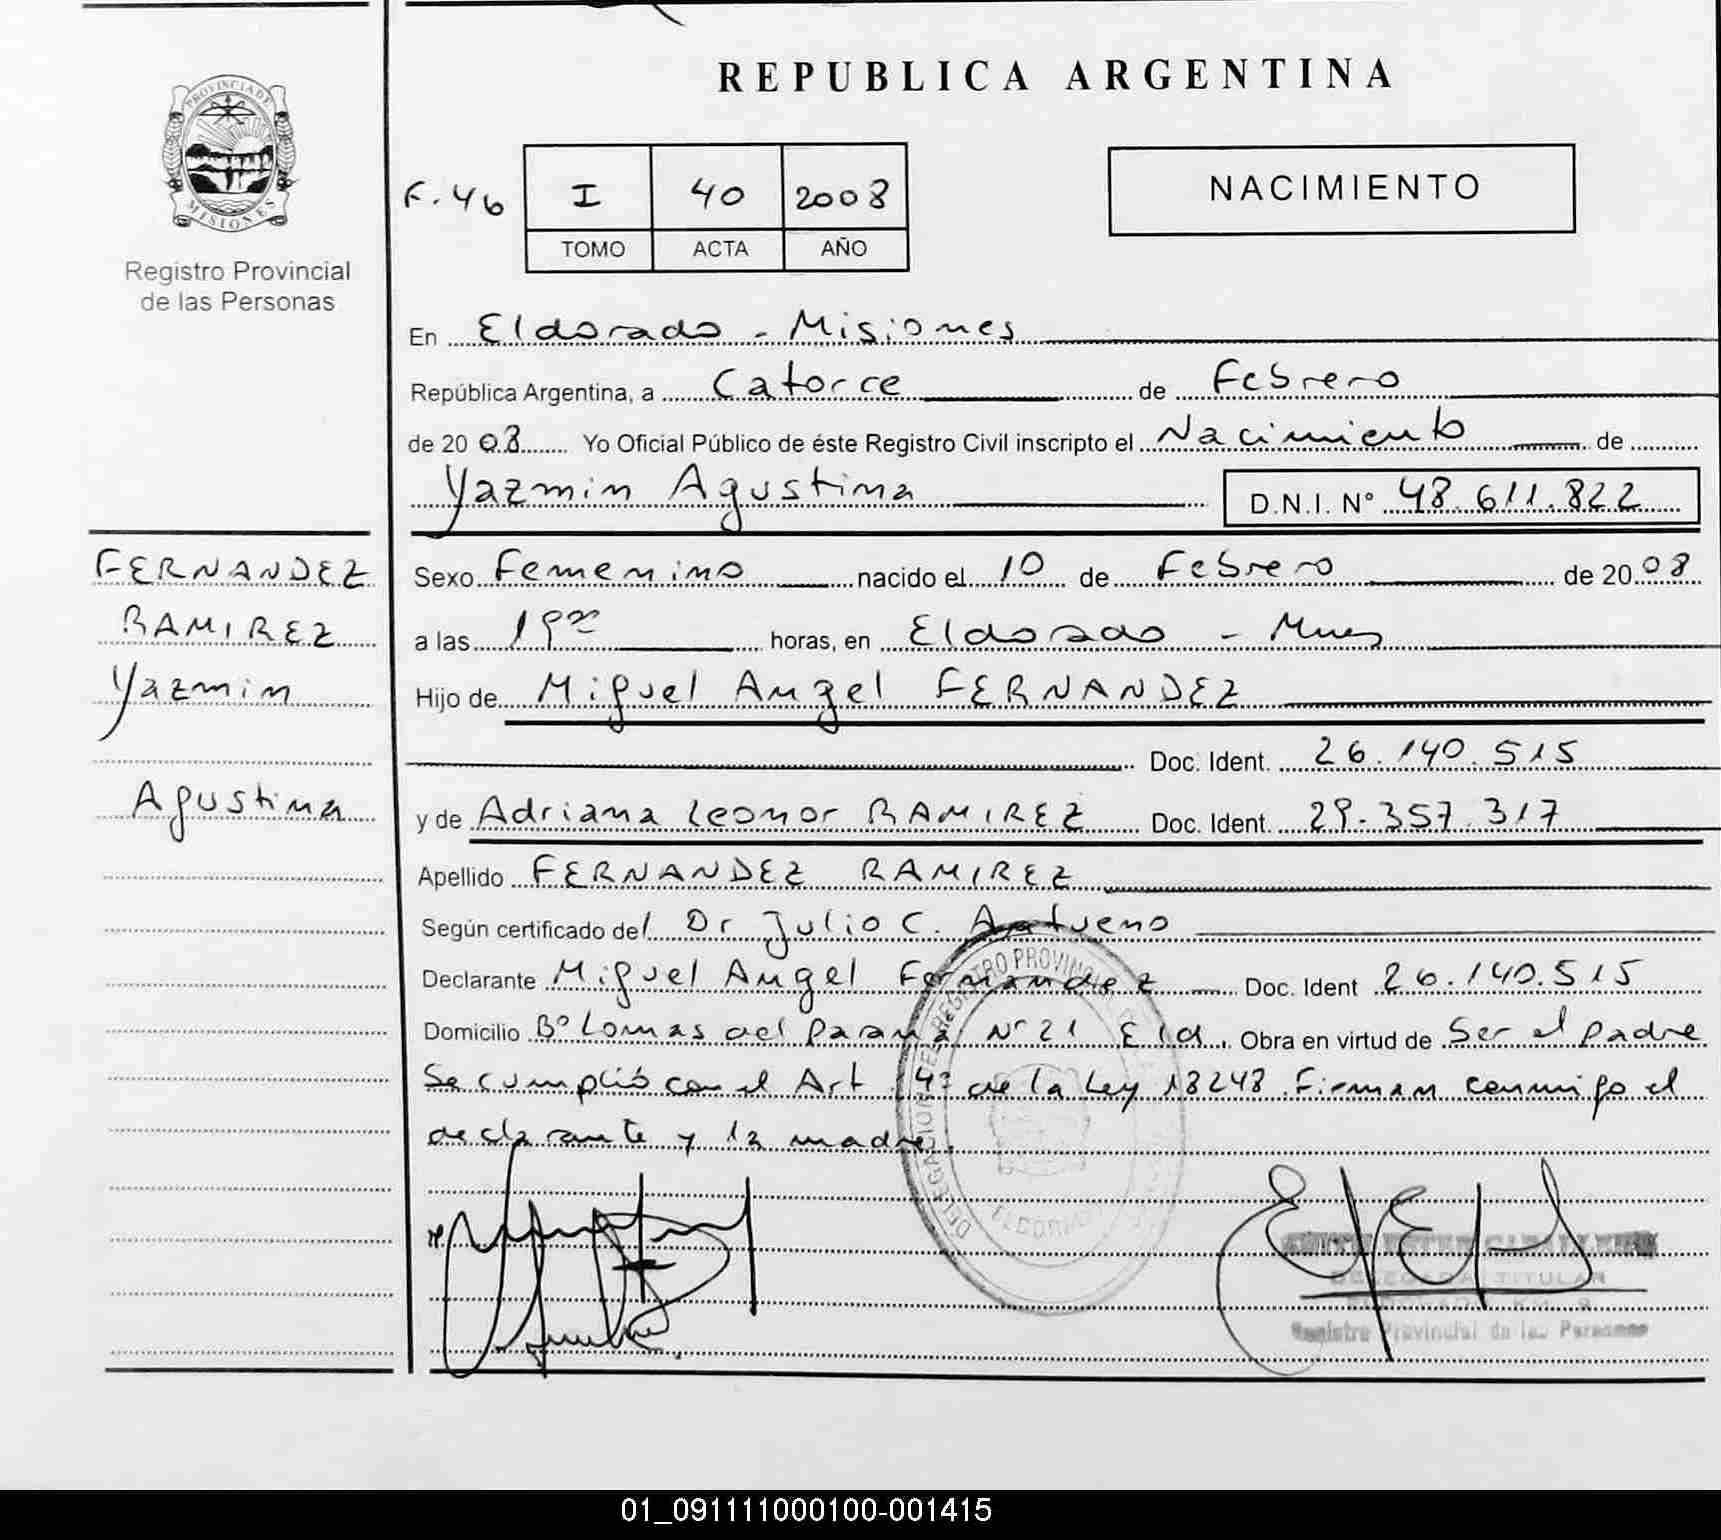 REPUBLICA ARGENTINA
PROVINCIA DE
MISIONES
Registro Provincial
de las Personas
F. 46
I 40 2008
TOMO ACTA AÑO
NACIMIENTO
En Eldorado - Misiones
República Argentina, a Catorce de Febrero
de 20 08 Yo Oficial Público de éste Registro Civil inscripto el Nacimiento de
Yazmin Agustina D.N.I. N° 48.611.822
FERNANDEZ
RAMIREZ
Yazmin
Agustina
Sexo Femenino nacido el 10 de Febrero de 20 08
a las 19 horas, en Eldorado - Mnes
Hijo de Miguel Angel FERNANDEZ
Doc. Ident. 26.140.515
y de Adriana Leonor RAMIREZ Doc. Ident. 29.357.317
Apellido FERNANDEZ RAMIREZ
Según certificado del Dr Julio C.
Declarante Miguel Angel Fernandez Doc. Ident 26.140.515
Domicilio B° Lomas del Parana N° 21 Eld. Obra en virtud de Ser el padre
Se cumplió con el Art. 4° de la Ley 18248. Firman conmigo el
declarante y la madre.
DELEGACION DEL REGISTRO PROVINCIAL
ELDORADO
DELEGADA TITULAR
Registro Provincial de las Personas
01_091111000100-001415